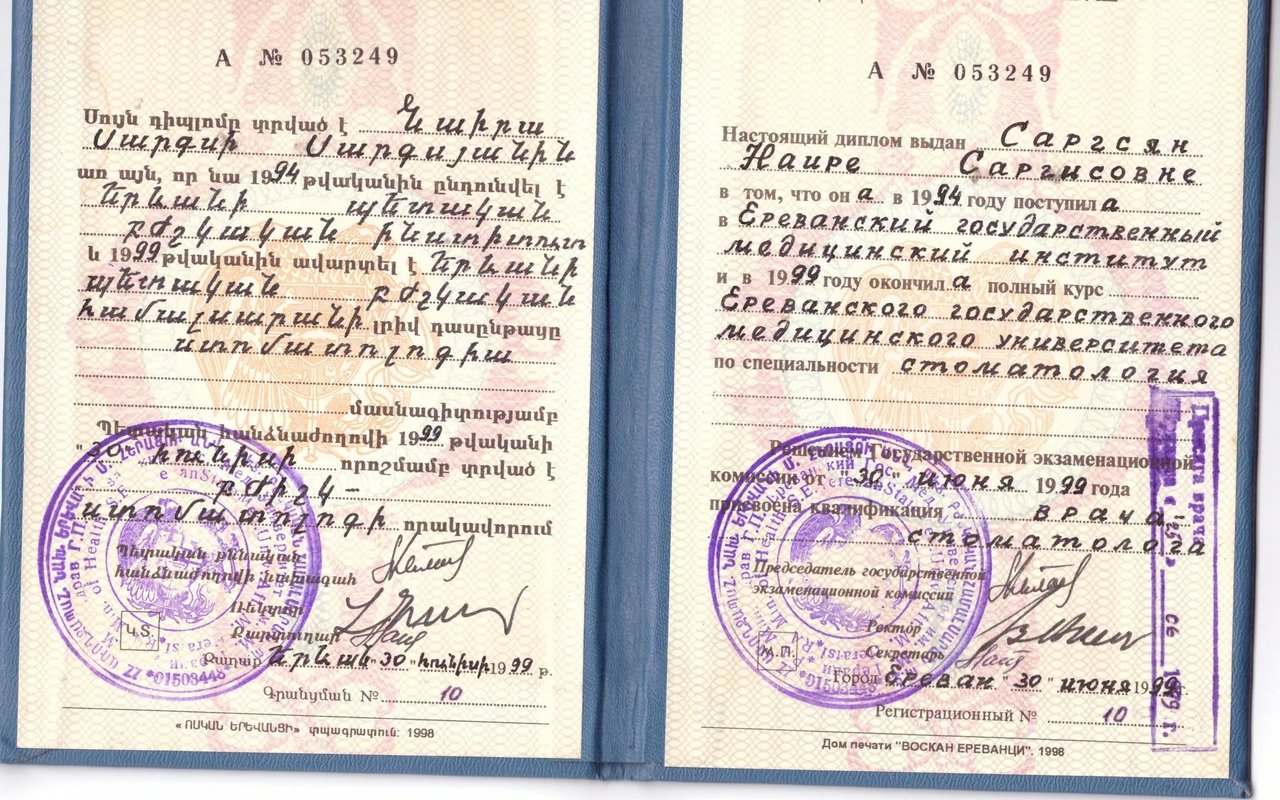 А № 053249
Սույն դիպլոմը տրված է Նաիրա
Սարգսի Սարգսյանին
առ այն, որ նա 1994 թվականին ընդունվել է
Երևանի պետական
բժշկական ինստիտուտ
և 1999 թվականին ավարտել է Երևանի
պետական բժշկական
համալսարանի լրիվ դասընթացը
ստոմատոլոգիա
մասնագիտությամբ
Պետական հանձնաժողովի 1999 թվականի
"30" հունիսի որոշմամբ տրված է
բժիշկ-
ստոմատոլոգի որակավորում
Պետական քննական
հանձնաժողովի նախագահ
Ռեկտոր
Կ.Տ.
Քարտուղար
Քաղաք Երևան "30" հունիսի 1999 թ.
Գրանցման № 10
« ՈՍԿԱՆ ԵՐԵՎԱՆՑԻ» տպագրատուն: 1998
А № 053249
Настоящий диплом выдан Саргсян
Наире Саргисовне
в том, что он а в 1994 году поступил а
в Ереванский государственный
медицинский институт
и в 1999 году окончил а полный курс
Ереванского государственного
медицинского университета
по специальности стоматология
Решением Государственной экзаменационной
комиссии от "30" июня 1999 года
присвоена квалификация врача
стоматолога
Председатель государственной
экзаменационной комиссии
Ректор
М.П.
Секретарь
Город Ереван "30" июня 1999г.
Регистрационный № 10
Дом печати "ВОСКАН ЕРЕВАНЦИ". 1998
*01503448
*01503448
врача
« 25 » 06 1999 г.